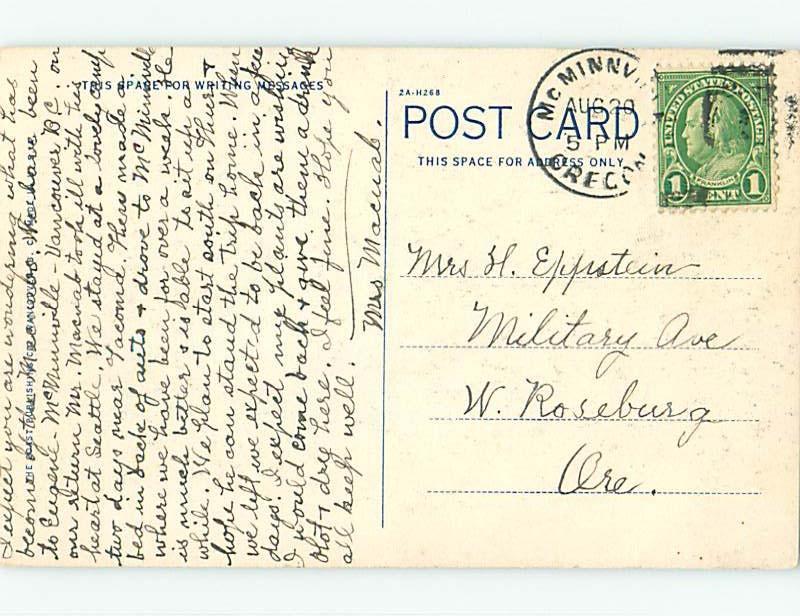 THIS SPACE FOR WRITING MESSAGES
I expect you are wondering what has
become of the Macnabs. We have been
to Eugene - McMinnville - Vancouver B.C. on
our return Mr. Macnab took ill with his
heart at Seattle. We stayed at a lovely camp
two days near Tacoma. Then made a
bed in back of auto & drove to McMinnville
where we have been for over a week. He
is much better & is able to sit up a
while. We plan to start south on Thurs. I
hope he can stand the trip home. When
we left we expected to be back in a few
days. I expect my plants are wishing
I would come back & give them a drink
Hot & dry here. I feel fine. Hope you
all keep well.
Mrs Macnab.
2A-H268
POST CARD
THIS SPACE FOR ADDRESS ONLY
McMINNV
AUG 20
5 PM
OREGON
UNITED STATES POSTAGE
FRANKLIN
1 CENT 1
Mrs H. Eppstein
Military Ave
W. Roseburg
Ore.